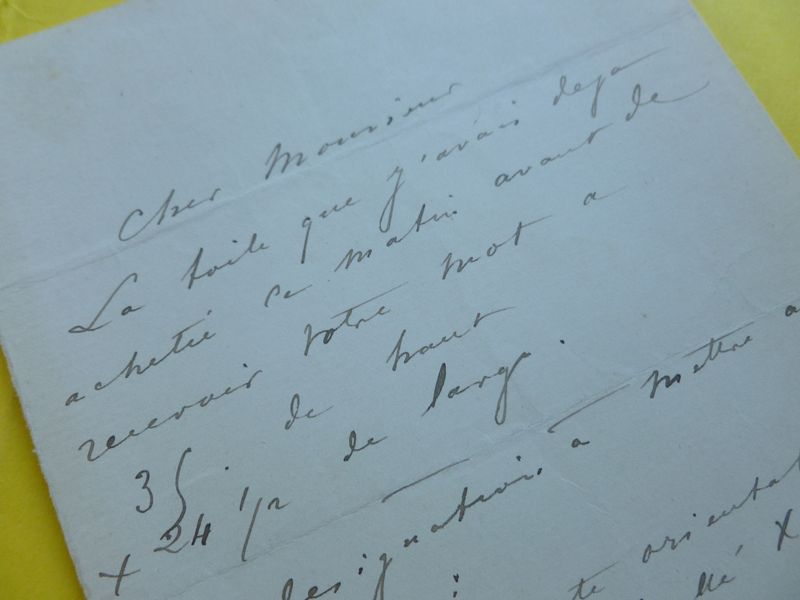 Cher Monsieur
La toile que j'avais deja
acheté ce matin avant de
recevoir votre mot a
35 . de haut
+ 24 1/2 de large.
designation a mettre a
: te oriental
llé X